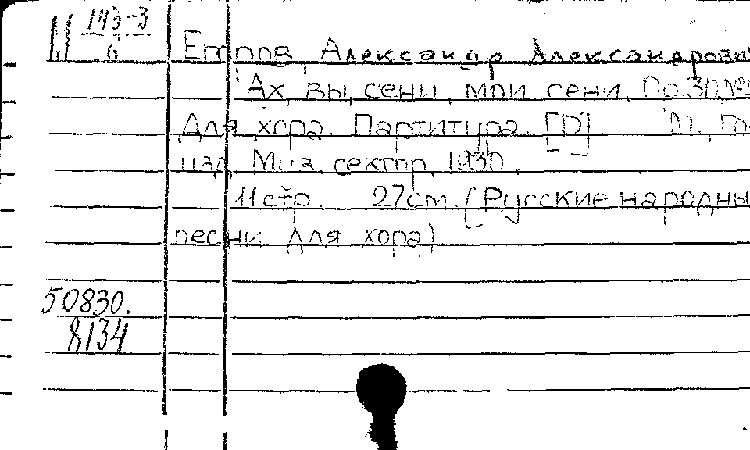 Ц 143-3
6
Егоров, Александр Александрови
Ах, вы, сени, мои сени.
Для хора. Партитура. [D] М.,
изд. Муз. сектор, 1930.
11 стр. 27см. (Русские народны
песни для хора)
50830.
8134